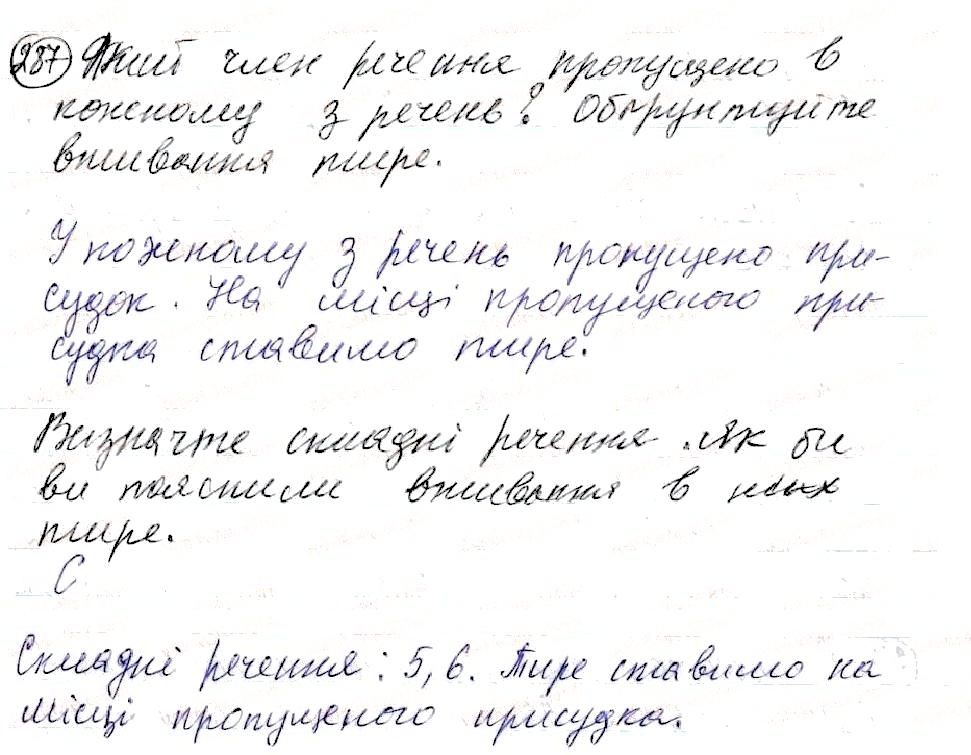 287 Який член речення пропущено в
кожному з речень? Обґрунтуйте
вживання тире.
У кожному з речень пропущено при-
судок. На місці пропущеного при-
судка ставимо тире.
Визначте складні речення. Як би
ви пояснили вживання в них
тире.
С
Складні речення: 5, 6. Тире ставимо на
місці пропущеного присудка.